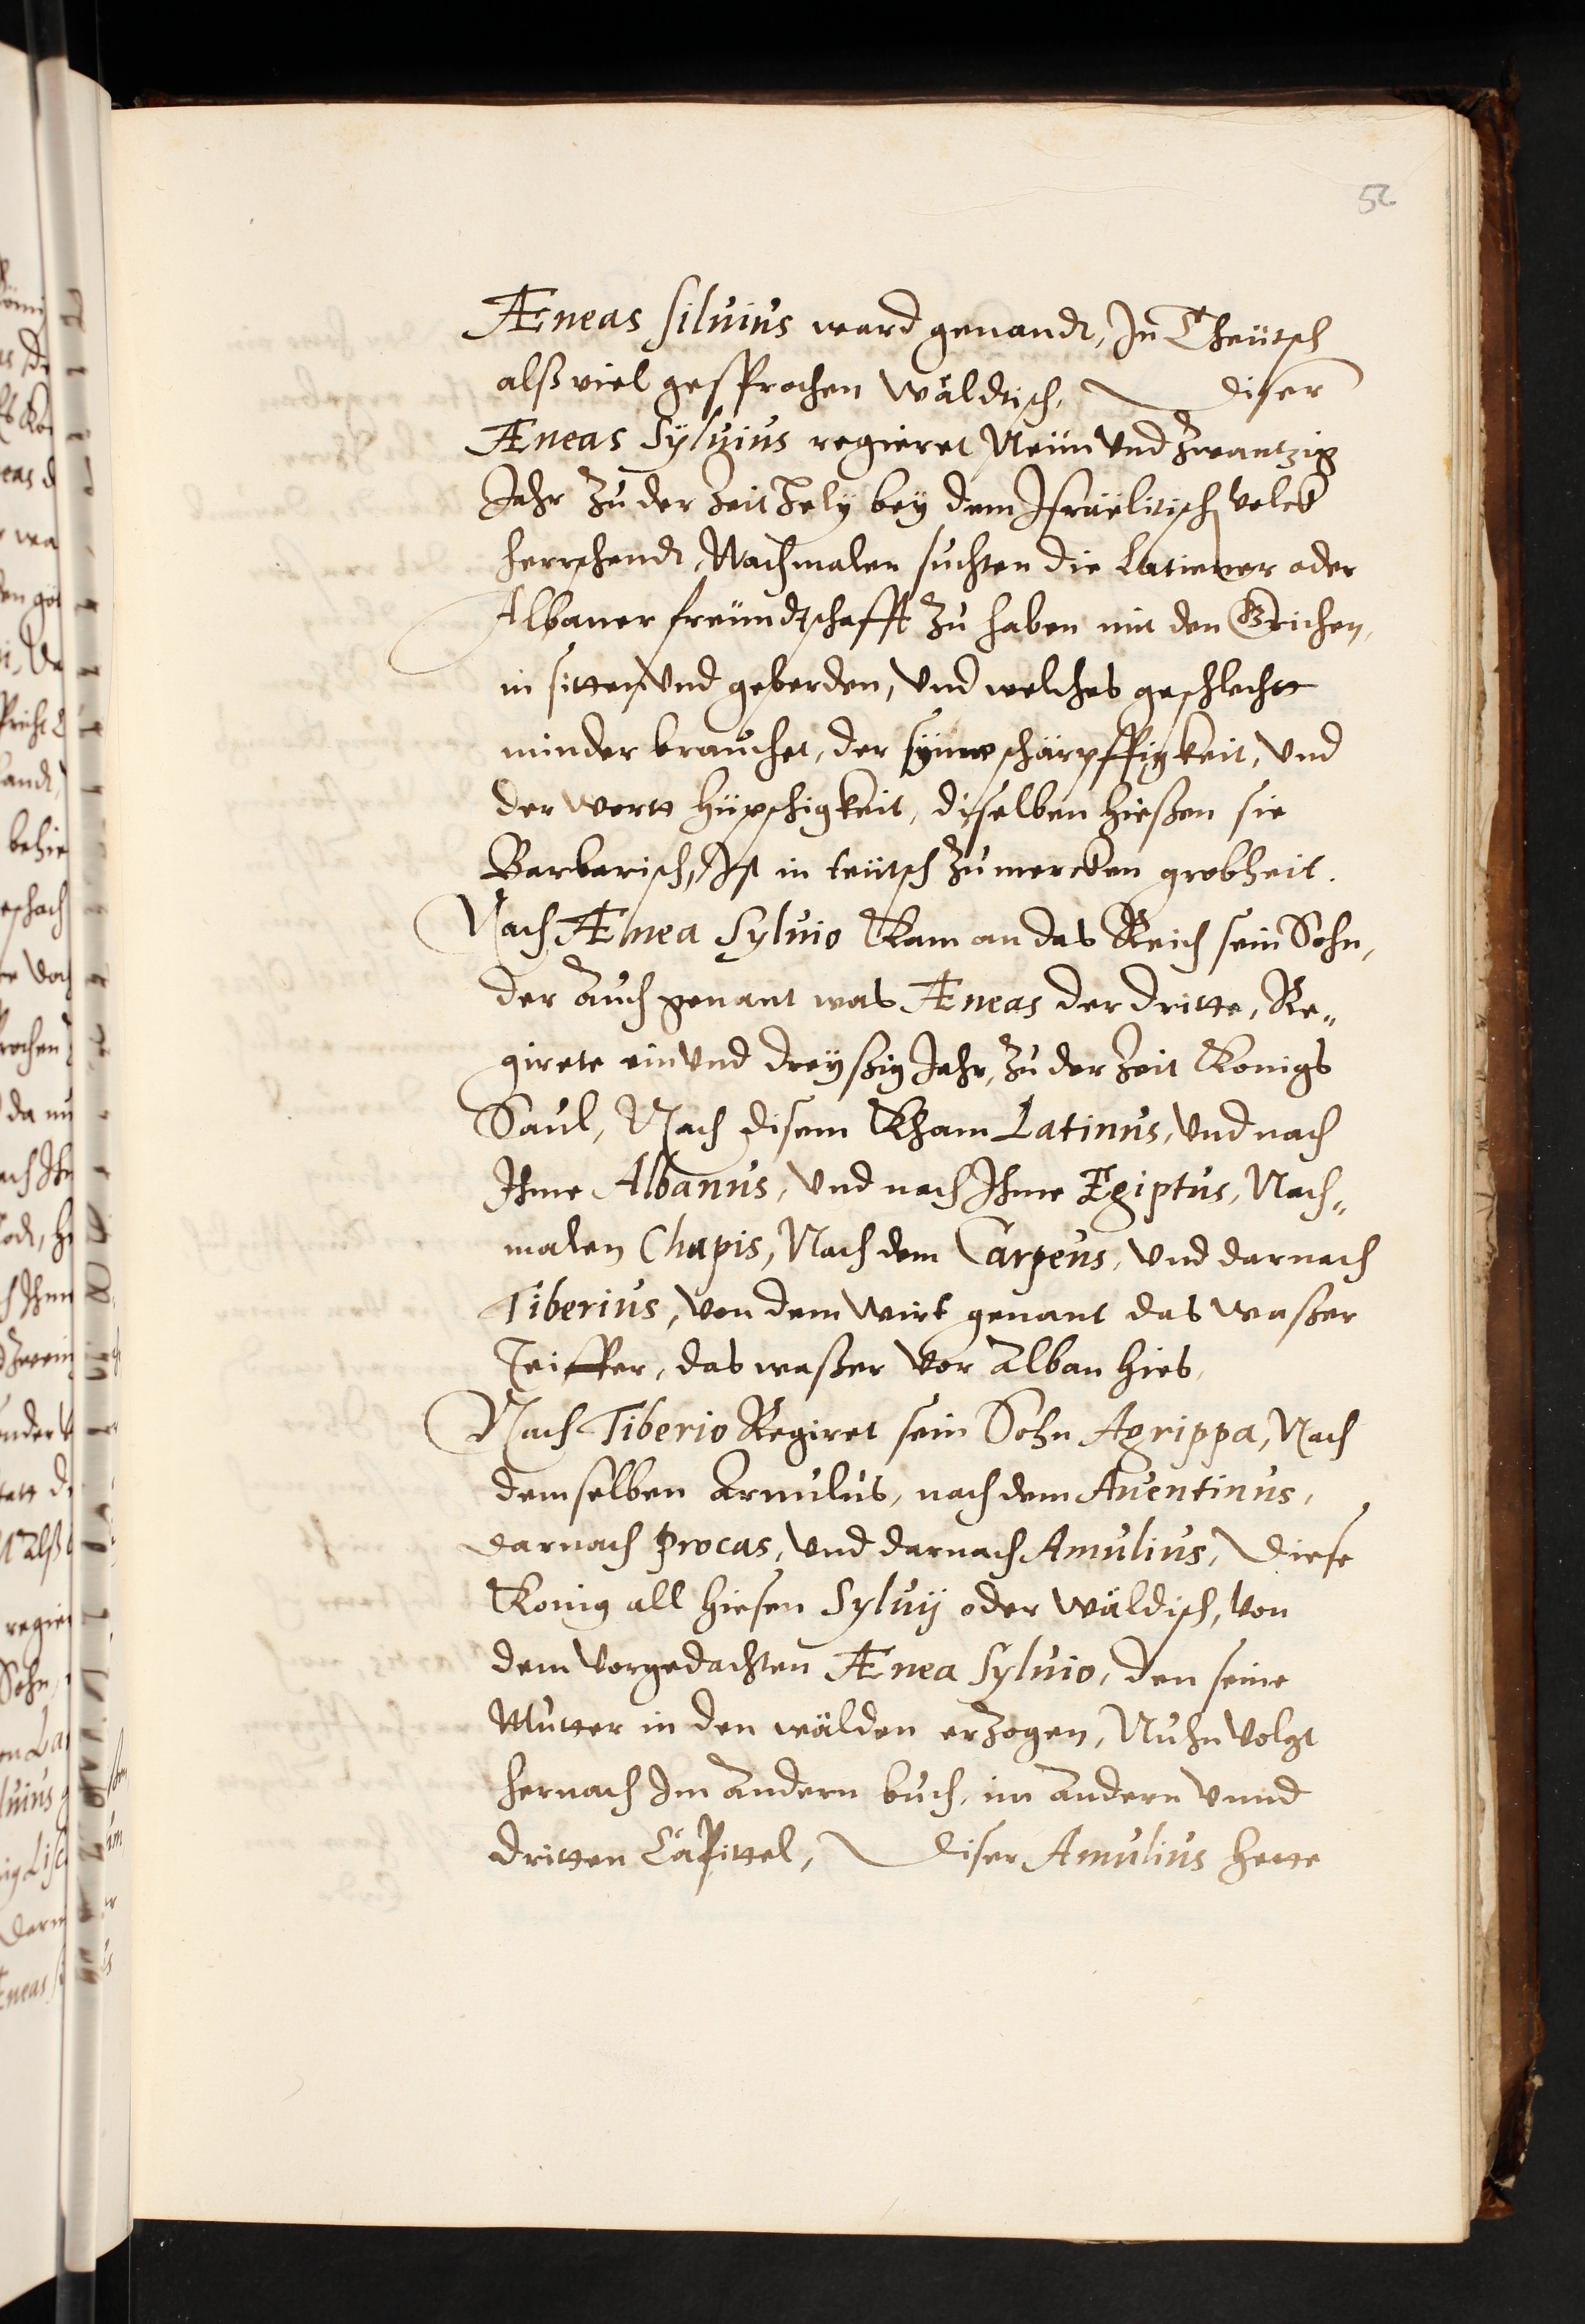 52
Æneas siluius ward genandt, In Theütsch
alß viel gesprochen wäldtisch, diser
Æneas Sÿluius regieret Neün Vnd Zwantzig
Jahr Zu der Zeit Hely beÿ dem Israëlitisch Volck
herrschendt, Nachmalen suchten die Latiener oder
Albaner freündtschafft Zu haben mit den Grichen,
in sitten Vnd geberden, Vnd welches geschlechtt
minder brauchet, der synne schärpffigkeit, Vnd
der wortt hüpschigkeit, diselben hießen sie
Barbarisch, Ist in teütsch Zu mercken grobheit.
Nach Ænea Syluio Kam an das Reich sein Sohn,
der Auch genant was Æneas der dritte, Re„
girete ein Vnd dreyßig Jahr, Zu der Zeit Konigs
Saul, Nach disem Kham Latinus, Vnd nach
Ihme Albanus, Vnd nach Ihme Egiptus, Nach„
malen Chapis, Nach dem Carpeus, Vnd darnach
Tiberius, Von dem wirt genant das waßer
Teiffer, das waßer Vor Alban hies,
Nach Tiberio Regiret sein Sohn Agrippa, Nach
demselben Armulus, nach dem Auentinus,
darnach Procas, Vnd darnach Amulius, Diese
Konig all hiesen Syluij oder wäldisch, Von
dem Vorgedachten Ænea Syluio, den seine
Mutter in den wälden erzogen, Nuhn Volgt
hernach Im Andern buch, im Andern Vnnd
dritten Capittel, Diser Amulius hette